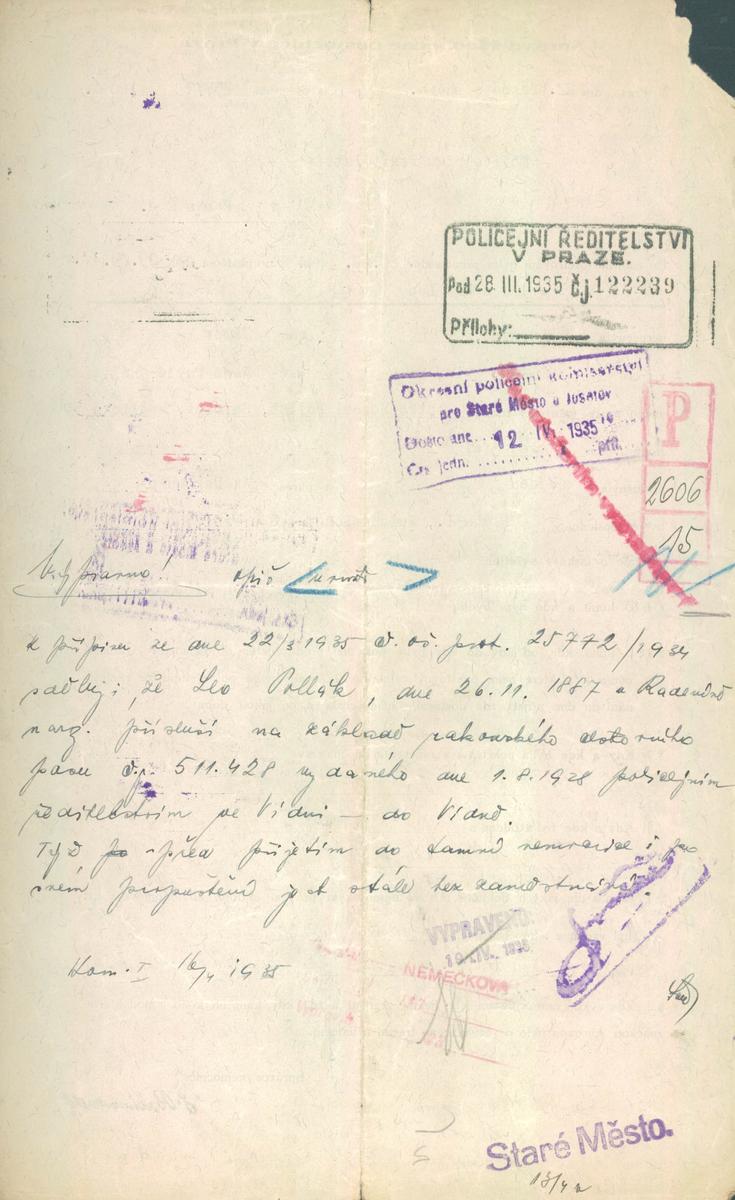 POLICEJNÍ ŘEDITELSTVÍ
V PRAZE.
Pod 28. III. 1935 Č.j. 122239
Přílohy:
Okresní policejní komisařství
pro Staré Město a Josefov
Došlo dne 12 IV. 1935
Čís. jedn. příl.
P
2606
15
opis
K přípisu ze dne 22/3 1935 č. 25772/1934
sděluji, že Leo Pollák, dne 26.11. 1887 v
nar. přísluší na základě rakouského cestovního
pasu č.j. 511.428 vydaného dne 1.8.1928 policejním
ředitelstvím ve Vídni — do Vídně.
Týž před přijetím do tamní nemocnice i po
svém propuštění jest stále bez zaměstnání.
Kom. I 16/4 1935
VYPRAVENO:
NĚMEČKOVA
Staré Město.
13/4